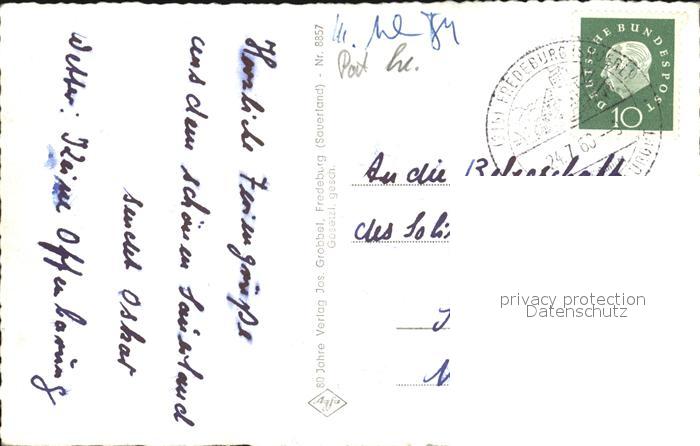 Herzliche Feriengrüße
aus dem schönen Sauerland
sendet Oskar
Wetter: Keine Offenbarung
80 Jahre Verlag Jos. Grobbel, Fredeburg (Sauerland) - Nr. 8857
Gesetzl. gesch.
Agfa
DEUTSCHE BUNDESPOST
10
FREDEBURG
24.7.60
An die Belegschaft
des
privacy protection
Datenschutz